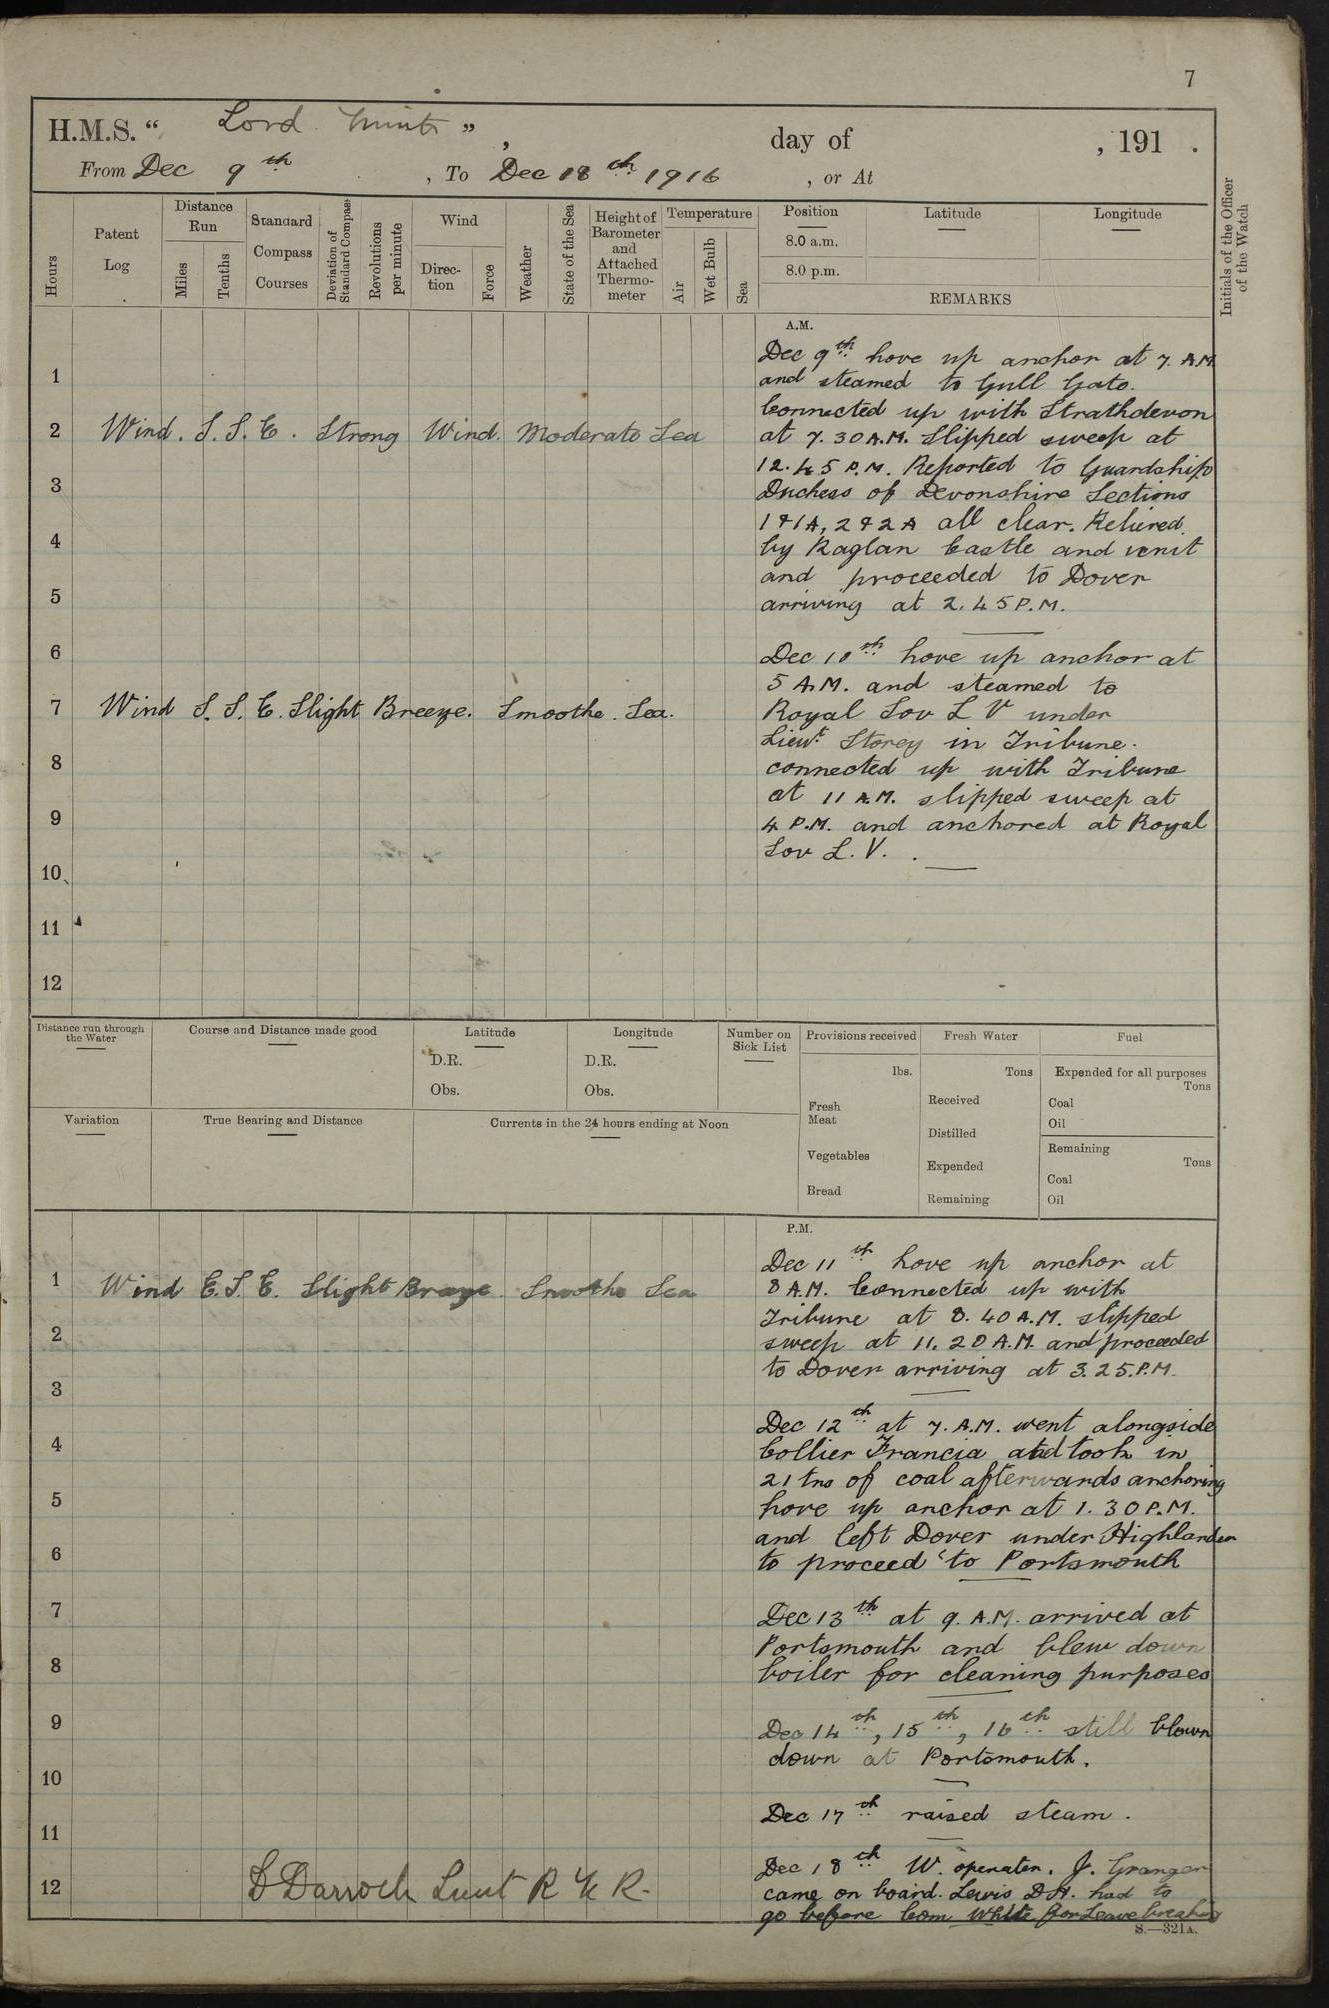 7
H.M.S. “ Lord Minto ”, day of , 191 .
From Dec 9th , To Dec 18th 1916 , or At
Hours
Patent Log
Distance Run
Miles
Tenths
Standard Compass Courses
Deviation of Standard Compass
Revolutions per minute
Wind
Direction
Force
Weather
State of the Sea
Height of Barometer and Attached Thermometer
Temperature
Air
Wet Bulb
Sea
Position Latitude Longitude
8.0 a.m.
8.0 p.m.
REMARKS
Initials of the Officer of the Watch
A.M.
Dec 9th hove up anchor at 7. A.M.
1
and steamed to Gull Gate.
Connected up with Strathdevon
2 Wind. S.S.E. Strong Wind. Moderate Sea
at 7.30 A.M. Slipped sweep at
12.45 P.M. Reported to Guardship
3
Duchess of Devonshire Sections
1 & 1A, 2 & 2A all clear. Relieved
4
by Raglan Castle and
and proceeded to Dover
5
arriving at 2.45 P.M.
6
Dec 10th hove up anchor at
5 A.M. and steamed to
7 Wind S.S.E. Slight Breeze. Smoothe Sea.
Royal Sov L V under
Lieut Storey in Tribune.
8
connected up with Tribune
at 11 A.M. slipped sweep at
9
4 P.M. and anchored at Royal
Sov L.V.
10
11
12
Distance run through the Water
Course and Distance made good
Latitude
D.R.
Obs.
Longitude
D.R.
Obs.
Number on Sick List
Provisions received
lbs.
Fresh Meat
Vegetables
Bread
Fresh Water
Tons
Received
Distilled
Expended
Remaining
Fuel
Expended for all purposes
Tons
Coal
Oil
Remaining
Tons
Coal
Oil
Variation
True Bearing and Distance
Currents in the 24 hours ending at Noon
P.M.
Dec 11th hove up anchor at
1 Wind E.S.E. Slight Breeze. Smoothe Sea
8 A.M. Connected up with
Tribune at 8.40 A.M. slipped
2
sweep at 11.20 A.M. and proceeded
to Dover arriving at 3.25. P.M.
3
Dec 12th at 7. A.M. went alongside
4
Collier Francia and took in
21 tns of coal afterwards anchoring
5
hove up anchor at 1.30 P.M.
and left Dover under Highlander
6
to proceed to Portsmouth
7
Dec 13th at 9. A.M. arrived at
Portsmouth and blew down
8
boiler for cleaning purposes
9
Dec 14th, 15th, 16th still blown
down at Portsmouth.
10
Dec 17th raised steam.
11
Dec 18th W. operator. J. Granger
12 D Darroch Lieut R N R.
came on board. Lewis D.H. had to
go before Com White for Leave breaking
S.—321A.